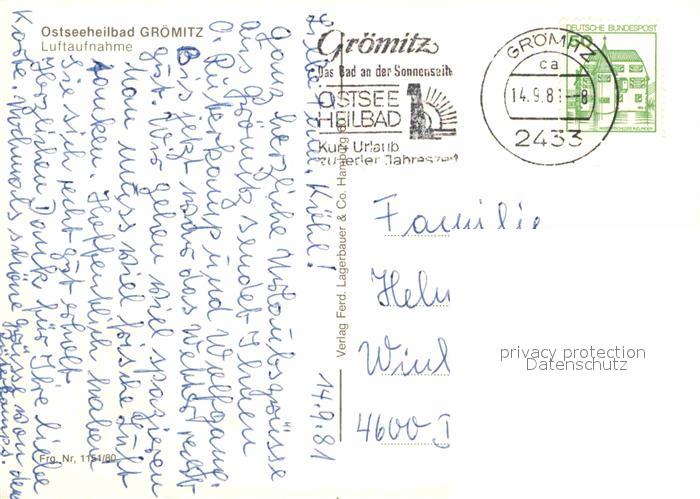 Ostseeheilbad GRÖMITZ
Luftaufnahme
Grömitz
Das Bad an der Sonnenseite
OSTSEE
HEILBAD
Kur + Urlaub
zu jeder Jahreszeit
GRÖMITZ
ca
14.9.81-8
2433
DEUTSCHE BUNDESPOST
Familie
Helm
Winkl
4600 D
privacy protection
Datenschutz
14.9.81
Ganz herzliche Urlaubsgrüsse
aus Grömitz sendet Ihnen
und Wolfgang.
Bis jetzt war das Wetter recht
gut. Wir gehen viel spazieren
Man muss viel frische Luft
tanken. Hoffentlich haben
Sie sich recht gut erholt
Herzlichen Dank für Ihre liebe
Karte. Nochmals schöne Grüsse von den
Verlag Ferd. Lagerbauer & Co. Hamburg
Frg. Nr. 1151/80